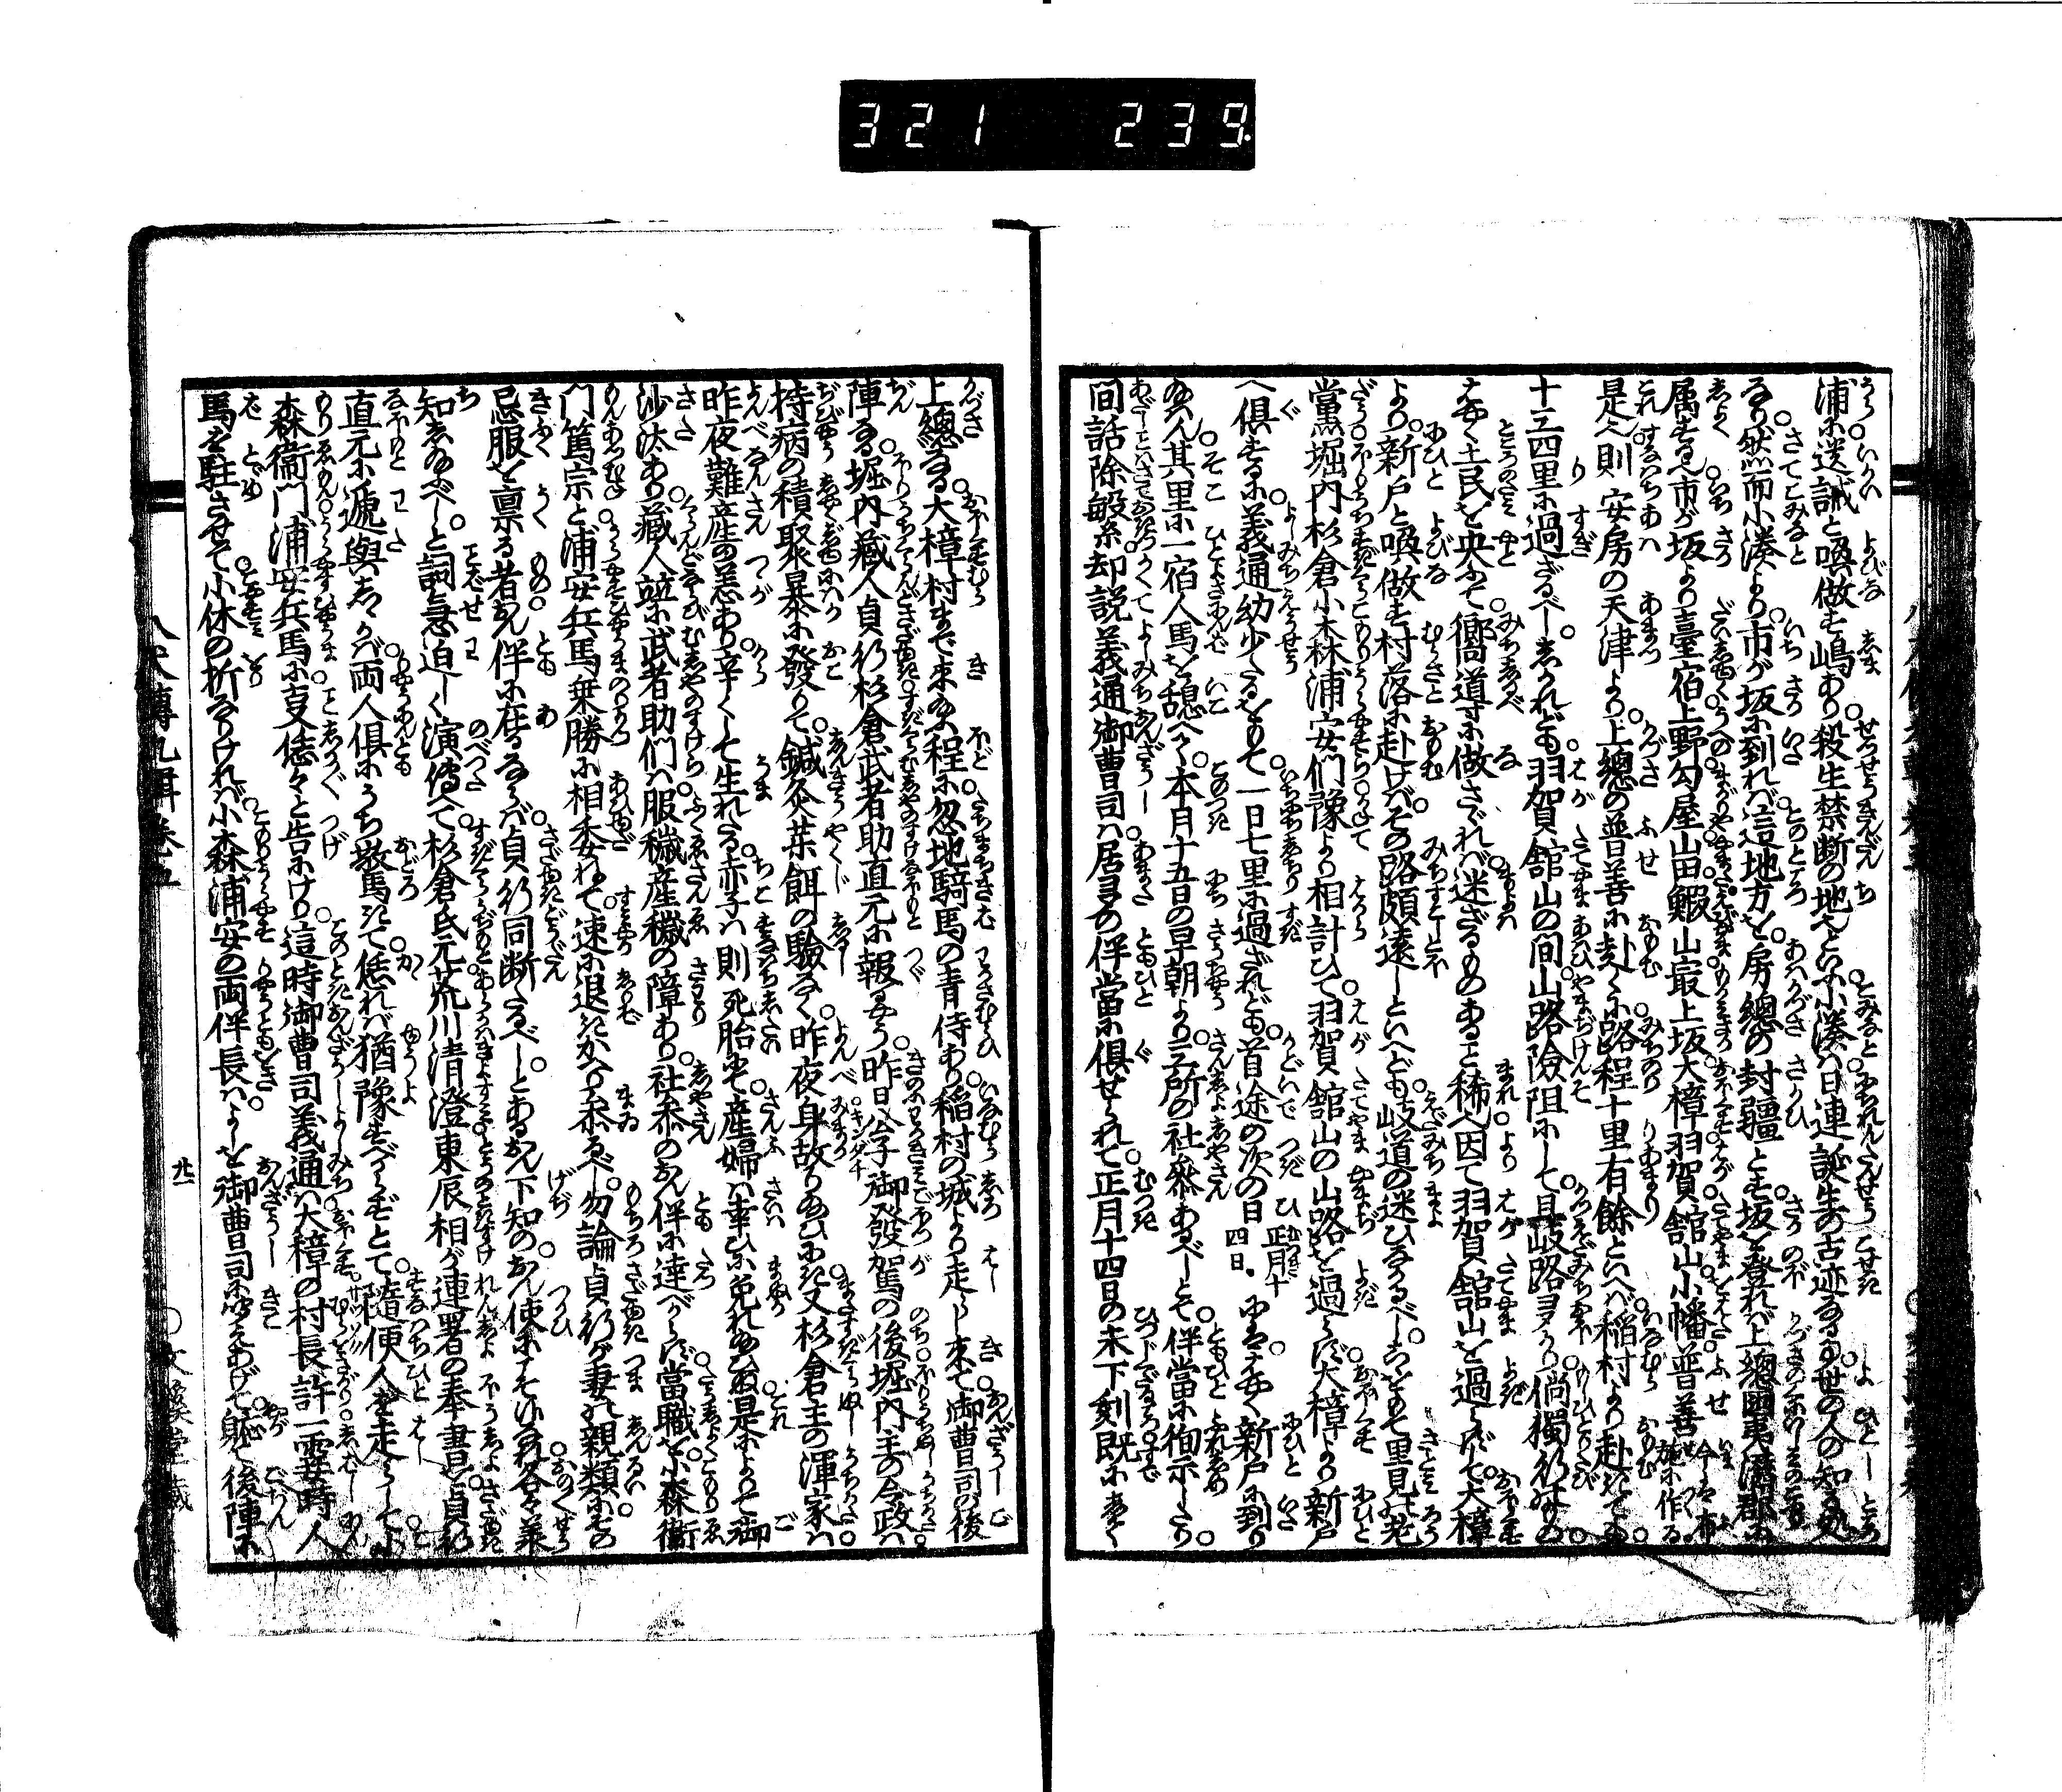 321 239
浦に送誡と喚做す嶋あり殺生禁断の地也といふ小湊は日連誕生の古迹なる事世の人の知る処
なり然而小湊より市が坂に到れば這地方を房總の封疆とす坂を登れば上總國夷灊郡に
属する也市が坂より臺宿上野勾屋山田鰕山最上坂大樟羽賀舘山小幡普善
今は布施に作る
是也則安房の天津より上總の普善に赴くに路程十里有餘といへば稲村より赴きても
十三四里に過ざるべししかれども羽賀舘山の間山路險阻にして且岐路多かり倘獨行ものは
よく土民を央みて嚮導に做さゞれば迷ざるものあること稀也因て羽賀舘山を過らずして大樟
より新戸と喚做す村落に赴けばその路頗遠しといへども岐道の迷ひなかるべしこゝをもて里見の老
黨堀内杉倉小森浦安們豫より相計ひて羽賀舘山の山路を過らず大樟より新戸
へ倶するに義通幼少たるをもて一日七里に過ざれども首途の次の日
正月十四日
に恙なく新戸に到り
給へ其里に一宿人馬を憩へて本月十五日の早朝より三所の社參あるべしとぞ伴當に徇示したる
間話除毄糸却説義通御曹司は居多の伴當に倶せられて正月十四日の未下刻既にはやく
上總なる大樟村まで来ぬる程に忽地騎馬の青侍あり稲村の城より走らし来て御曹司の後
陣なる堀内藏人貞行杉倉武者助直元に報るやう昨日公子御發駕の後堀内主の令政は
持病の積聚暴に發りて鍼灸藥餌の驗なく昨夜身故り給ひにき又杉倉主の渾家は
昨夜難産の恙あり辛くして生れたる赤子は則死胎にて産婦は幸ひに免れ給ひぬ是によりて御
沙汰あり藏人並に武者助們は服穢産穢の障あり社參のおん伴に達がたし當職を小森衛
門篤宗と浦安兵馬乗勝に相委ねて速に退きかへり参るべし勿論貞行が妻の親類にその
忌服を稟る者おん伴に在るならば貞行同断たるべしとあるおん下知のおん使にこそ候なれ各々義
知しねかしと詞急迫しく演傳へて杉倉氏元荒川清澄東辰相が連署の奉書を貞行
直元に遞與しゝかば両人倶にうち驚きて恁れば猶豫すべからずとて隨便人を走らして小
森衛門浦安兵馬に云云恁々と告にけり這時御曹司義通は大樟の村長許一霎時人
馬を駐させて小休の折なりければ小森浦安の両伴長はよしを御曹司に聞えあげて軈て後陣に
八犬傳九輯卷五
廿一
○文溪堂藏